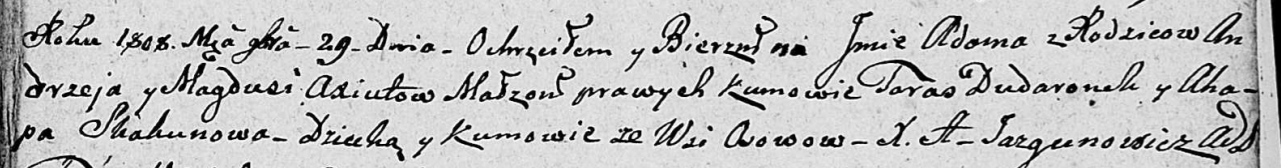 Roku 1808. Mca gbra - 29 - Dnia - Ochrzciłem y Bierzmł na Jmie Adama z Rodzicow An
drzeja y Magdusi Axiutow Małżon prawych Kumowie Taras Dudaronek y Aha-
pa Skakunowa - Dziecka y Kumowie ze Wsi Osowow - X. A - Jazgunowicz